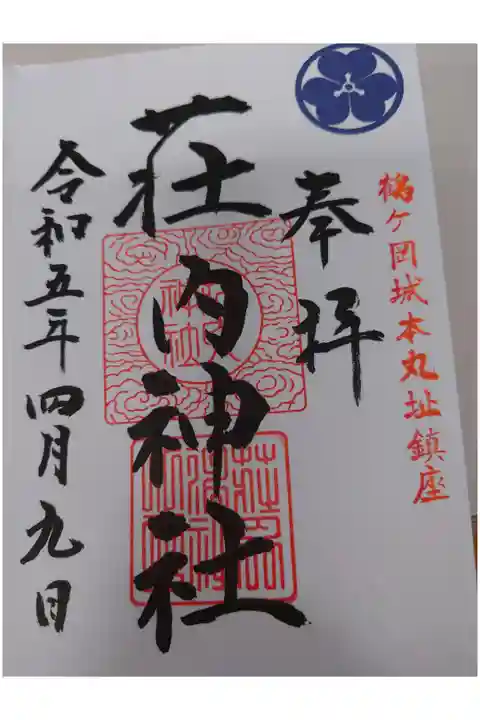 鶴ケ岡城本丸址鎮座
奉拝
荘内神社
令和五年四月九日